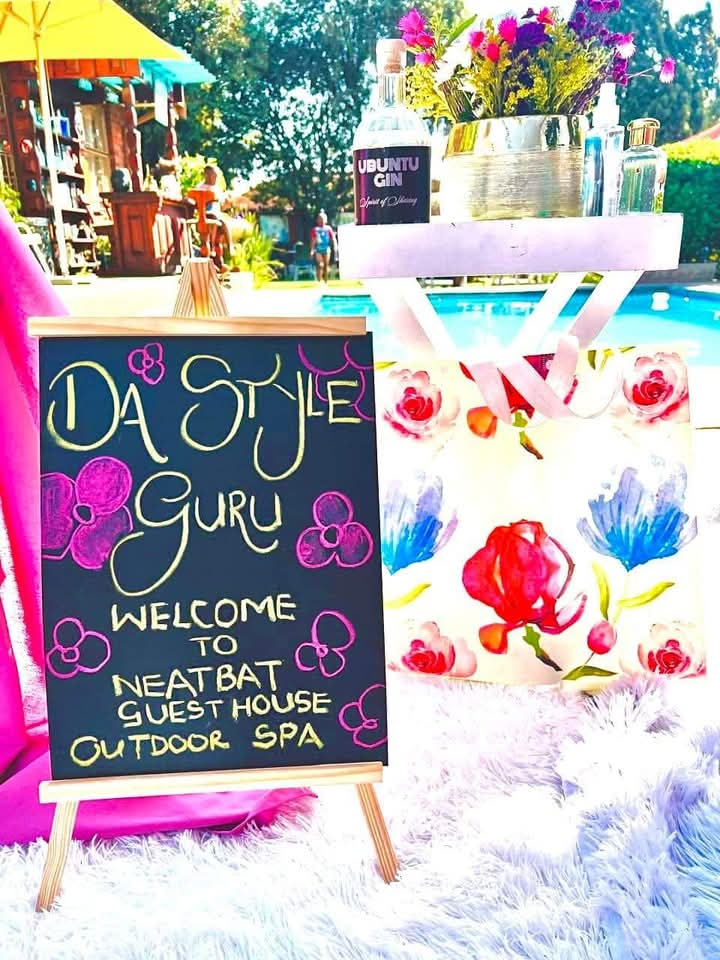 UBUNTU
GIN
Spirit of Sharing
DA STYLE
GURU
WELCOME
TO
NEATBAT
GUEST HOUSE
OUTDOOR SPA